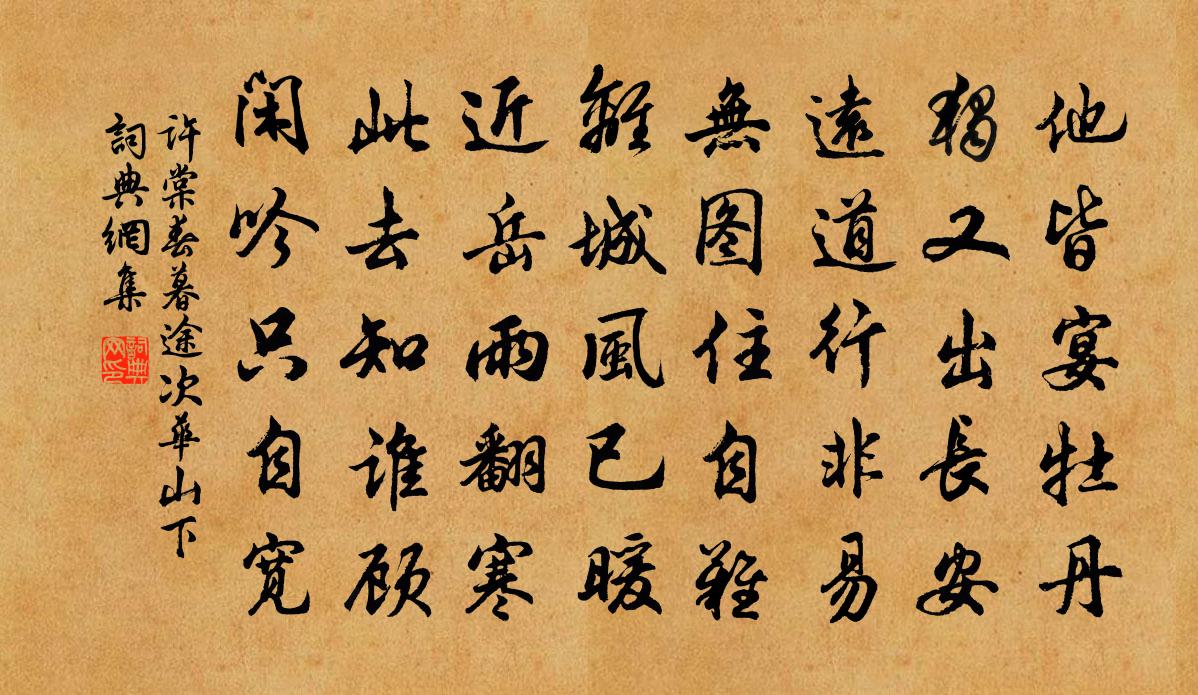 他皆宴牡丹
獨又出長安
遠道行非易
無图住自難
離城風已暖
近岳雨翻寒
此去知誰顾
閑吟只自寬
許棠春暮途次華山下
詞典網集
詞典网印